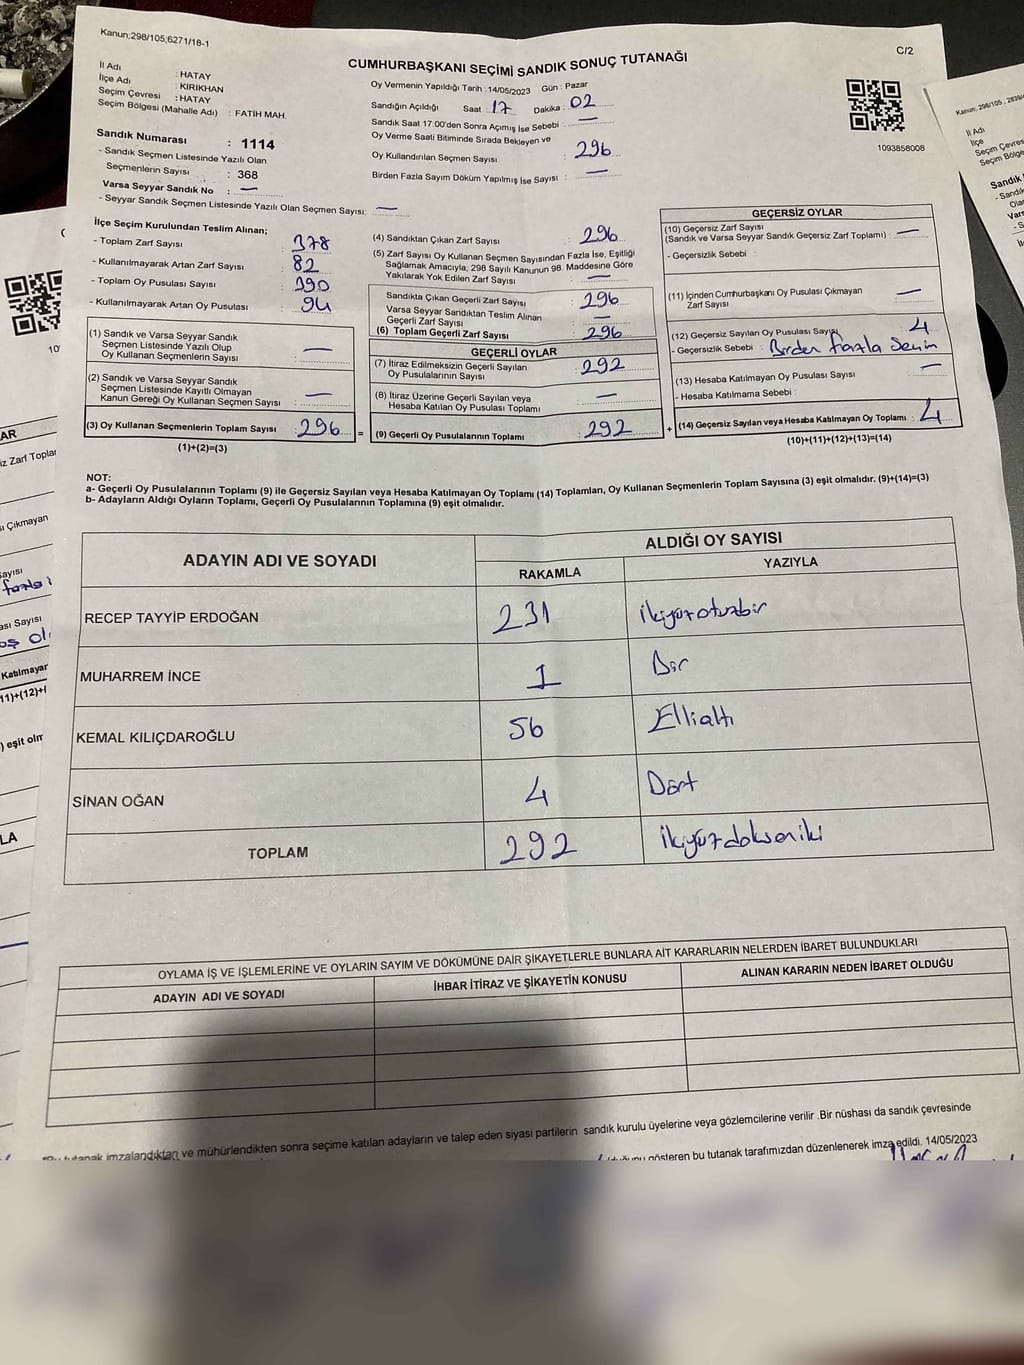 Kanun;298/105;6271/18-1
C/2
CUMHURBAŞKANI SEÇİMİ SANDIK SONUÇ TUTANAĞI
İl Adı : HATAY
İlçe Adı : KIRIKHAN
Seçim Çevresi : HATAY
Seçim Bölgesi (Mahalle Adı) : FATİH MAH.
Sandık Numarası : 1114
- Sandık Seçmen Listesinde Yazılı Olan
Seçmenlerin Sayısı : 368
Varsa Seyyar Sandık No : —
- Seyyar Sandık Seçmen Listesinde Yazılı Olan Seçmen Sayısı: —
Oy Vermenin Yapıldığı Tarih :14/05/2023 Gün : Pazar
Sandığın Açıldığı Saat : 17 Dakika : 02
Sandık Saat 17:00'den Sonra Açımış İse Sebebi : —
Oy Verme Saati Bitiminde Sırada Bekleyen ve
Oy Kullandırılan Seçmen Sayısı : 296
Birden Fazla Sayım Döküm Yapılmış İse Sayısı : —
1093858008
İlçe Seçim Kurulundan Teslim Alınan;
- Toplam Zarf Sayısı : 378
- Kullanılmayarak Artan Zarf Sayısı : 82
- Toplam Oy Pusulası Sayısı : 390
- Kullanılmayarak Artan Oy Pusulası : 94
(1) Sandık ve Varsa Seyyar Sandık
Seçmen Listesinde Yazılı Olup
Oy Kullanan Seçmenlerin Sayısı : —
(2) Sandık ve Varsa Seyyar Sandık
Seçmen Listesinde Kayıtlı Olmayan
Kanun Gereği Oy Kullanan Seçmen Sayısı : —
(3) Oy Kullanan Seçmenlerin Toplam Sayısı : 296 =
(1)+(2)=(3)
(4) Sandıktan Çıkan Zarf Sayısı : 296
(5) Zarf Sayısı Oy Kullanan Seçmen Sayısından Fazla İse, Eşitliği
Sağlamak Amacıyla; 298 Sayılı Kanunun 98. Maddesine Göre
Yakılarak Yok Edilen Zarf Sayısı : —
Sandıkta Çıkan Geçerli Zarf Sayısı : 296
Varsa Seyyar Sandıktan Teslim Alınan
Geçerli Zarf Sayısı : —
(6) Toplam Geçerli Zarf Sayısı : 296
GEÇERLİ OYLAR
(7) İtiraz Edilmeksizin Geçerli Sayılan
Oy Pusulalarının Sayısı : 292
(8) İtiraz Üzerine Geçerli Sayılan veya
Hesaba Katılan Oy Pusulası Toplamı : —
(9) Geçerli Oy Pusulalarının Toplamı : 292 +
GEÇERSİZ OYLAR
(10) Geçersiz Zarf Sayısı
(Sandık ve Varsa Seyyar Sandık Geçersiz Zarf Toplamı) : —
- Geçersizlik Sebebi :
(11) İçinden Cumhurbaşkanı Oy Pusulası Çıkmayan
Zarf Sayısı : —
(12) Geçersiz Sayılan Oy Pusulası Sayısı 4
- Geçersizlik Sebebi : Birden fazla Seçim
(13) Hesaba Katılmayan Oy Pusulası Sayısı : —
- Hesaba Katılmama Sebebi :
(14) Geçersiz Sayılan veya Hesaba Katılmayan Oy Toplamı : 4
(10)+(11)+(12)+(13)=(14)
NOT:
a- Geçerli Oy Pusulalarının Toplamı (9) ile Geçersiz Sayılan veya Hesaba Katılmayan Oy Toplamı (14) Toplamları, Oy Kullanan Seçmenlerin Toplam Sayısına (3) eşit olmalıdır. (9)+(14)=(3)
b- Adayların Aldığı Oyların Toplamı, Geçerli Oy Pusulalarının Toplamına (9) eşit olmalıdır.
ADAYIN ADI VE SOYADI
ALDIĞI OY SAYISI
RAKAMLA YAZIYLA
RECEP TAYYİP ERDOĞAN 231 ikiyüzotuzbir
MUHARREM İNCE 1 Bir
KEMAL KILIÇDAROĞLU 56 Ellialtı
SİNAN OĞAN 4 Dört
TOPLAM 292 ikiyüzdoksaniki
OYLAMA İŞ VE İŞLEMLERİNE VE OYLARIN SAYIM VE DÖKÜMÜNE DAİR ŞİKAYETLERLE BUNLARA AİT KARARLARIN NELERDEN İBARET BULUNDUKLARI
ADAYIN ADI VE SOYADI İHBAR İTİRAZ VE ŞİKAYETİN KONUSU ALINAN KARARIN NEDEN İBARET OLDUĞU
tutanak imzalandıktan ve mühürlendikten sonra seçime katılan adayların ve talep eden siyasi partilerin sandık kurulu üyelerine veya gözlemcilerine verilir .Bir nüshası da sandık çevresinde
gösteren bu tutanak tarafımızdan düzenlenerek imza edildi. 14/05/2023